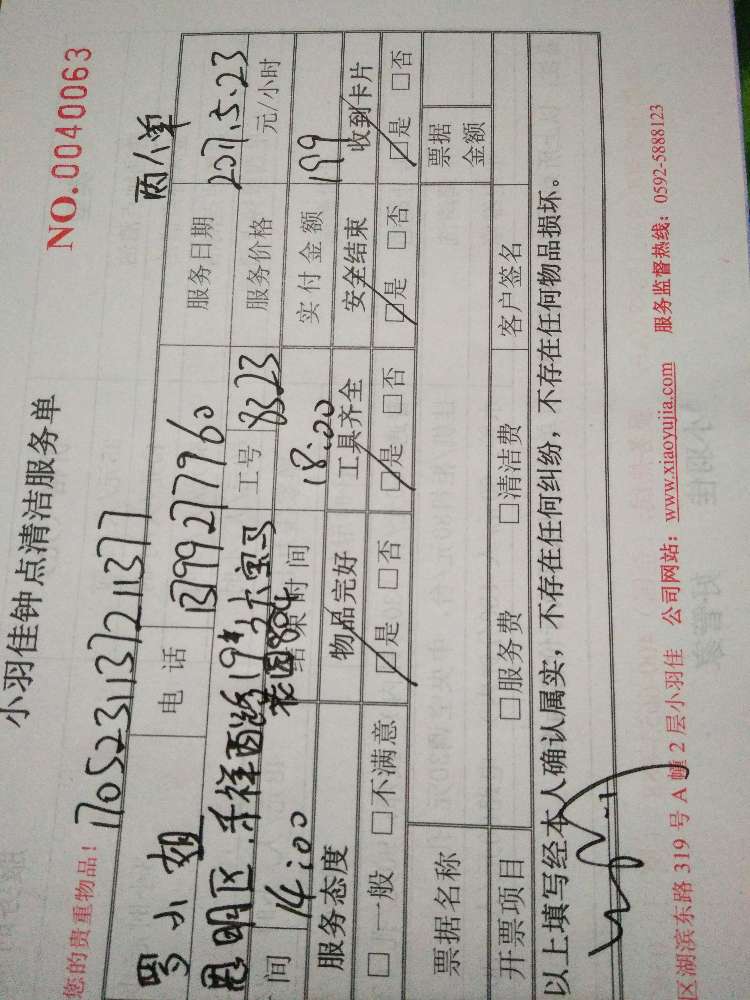 小羽佳钟点清洁服务单
NO.0040063
您的贵重物品!
1705231137211377
两人单
小姐 电话 13799277960 服务日期 2017.5.23
思明区 禾祥西路19# 工号 8323 服务价格 元/小时
花园804
间 14:00 结束时间 18:00 实付金额 199
服务态度 物品完好 工具齐全 安全结束 收到卡片
□一般 □不满意 □是 □否 □是 □否 □是 □否 □是 □否
票据名称 票据金额
开票项目 □服务费 □清洁费 客户签名
以上填写经本人确认属实，不存在任何纠纷，不存在任何物品损坏。
区湖滨东路 319 号 A 幢 2 层小羽佳 公司网站：www.xiaoyujia.com 服务监督热线：0592-5888123